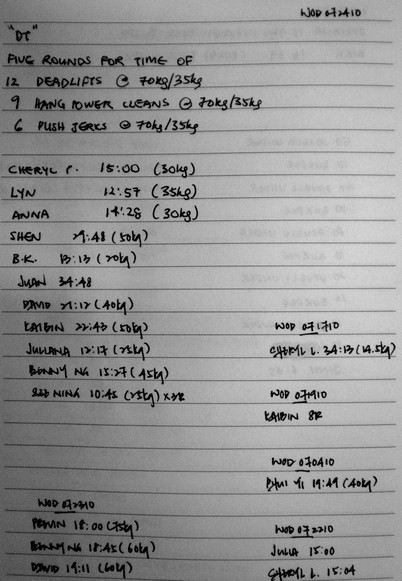 WOD 072410
"DT"
FIVE ROUNDS FOR TIME OF
12 DEADLIFTS @ 70kg/35kg
9 HANG POWER CLEANS @ 70kg/35kg
6 PUSH JERKS @ 70kg/35kg
CHERYL P. 15:00 (30kg)
LYN 12:57 (35kg)
ANNA 14:28 (30kg)
SHEN 29:48 (50kg)
B.K. 13:13 (20kg)
JUAN 34:48
DAVID 21:12 (40kg)
KAIBIN 22:43 (50kg)
JULIANA 12:17 (25kg)
BENNY NG 15:27 (45kg)
SZE NING 10:45 (25kg) x3R
WOD 071710
CHERYL L. 34:13 (14.5kg)
WOD 071910
KAIBIN 8R
WOD 070410
PHUI YI 19:49 (40kg)
WOD 072310
18:00 (75kg)
BENNY NG 18:45 (60kg)
DAVID 19:11 (60kg)
WOD 072210
JULIA 15:00
CHERYL L. 15:04